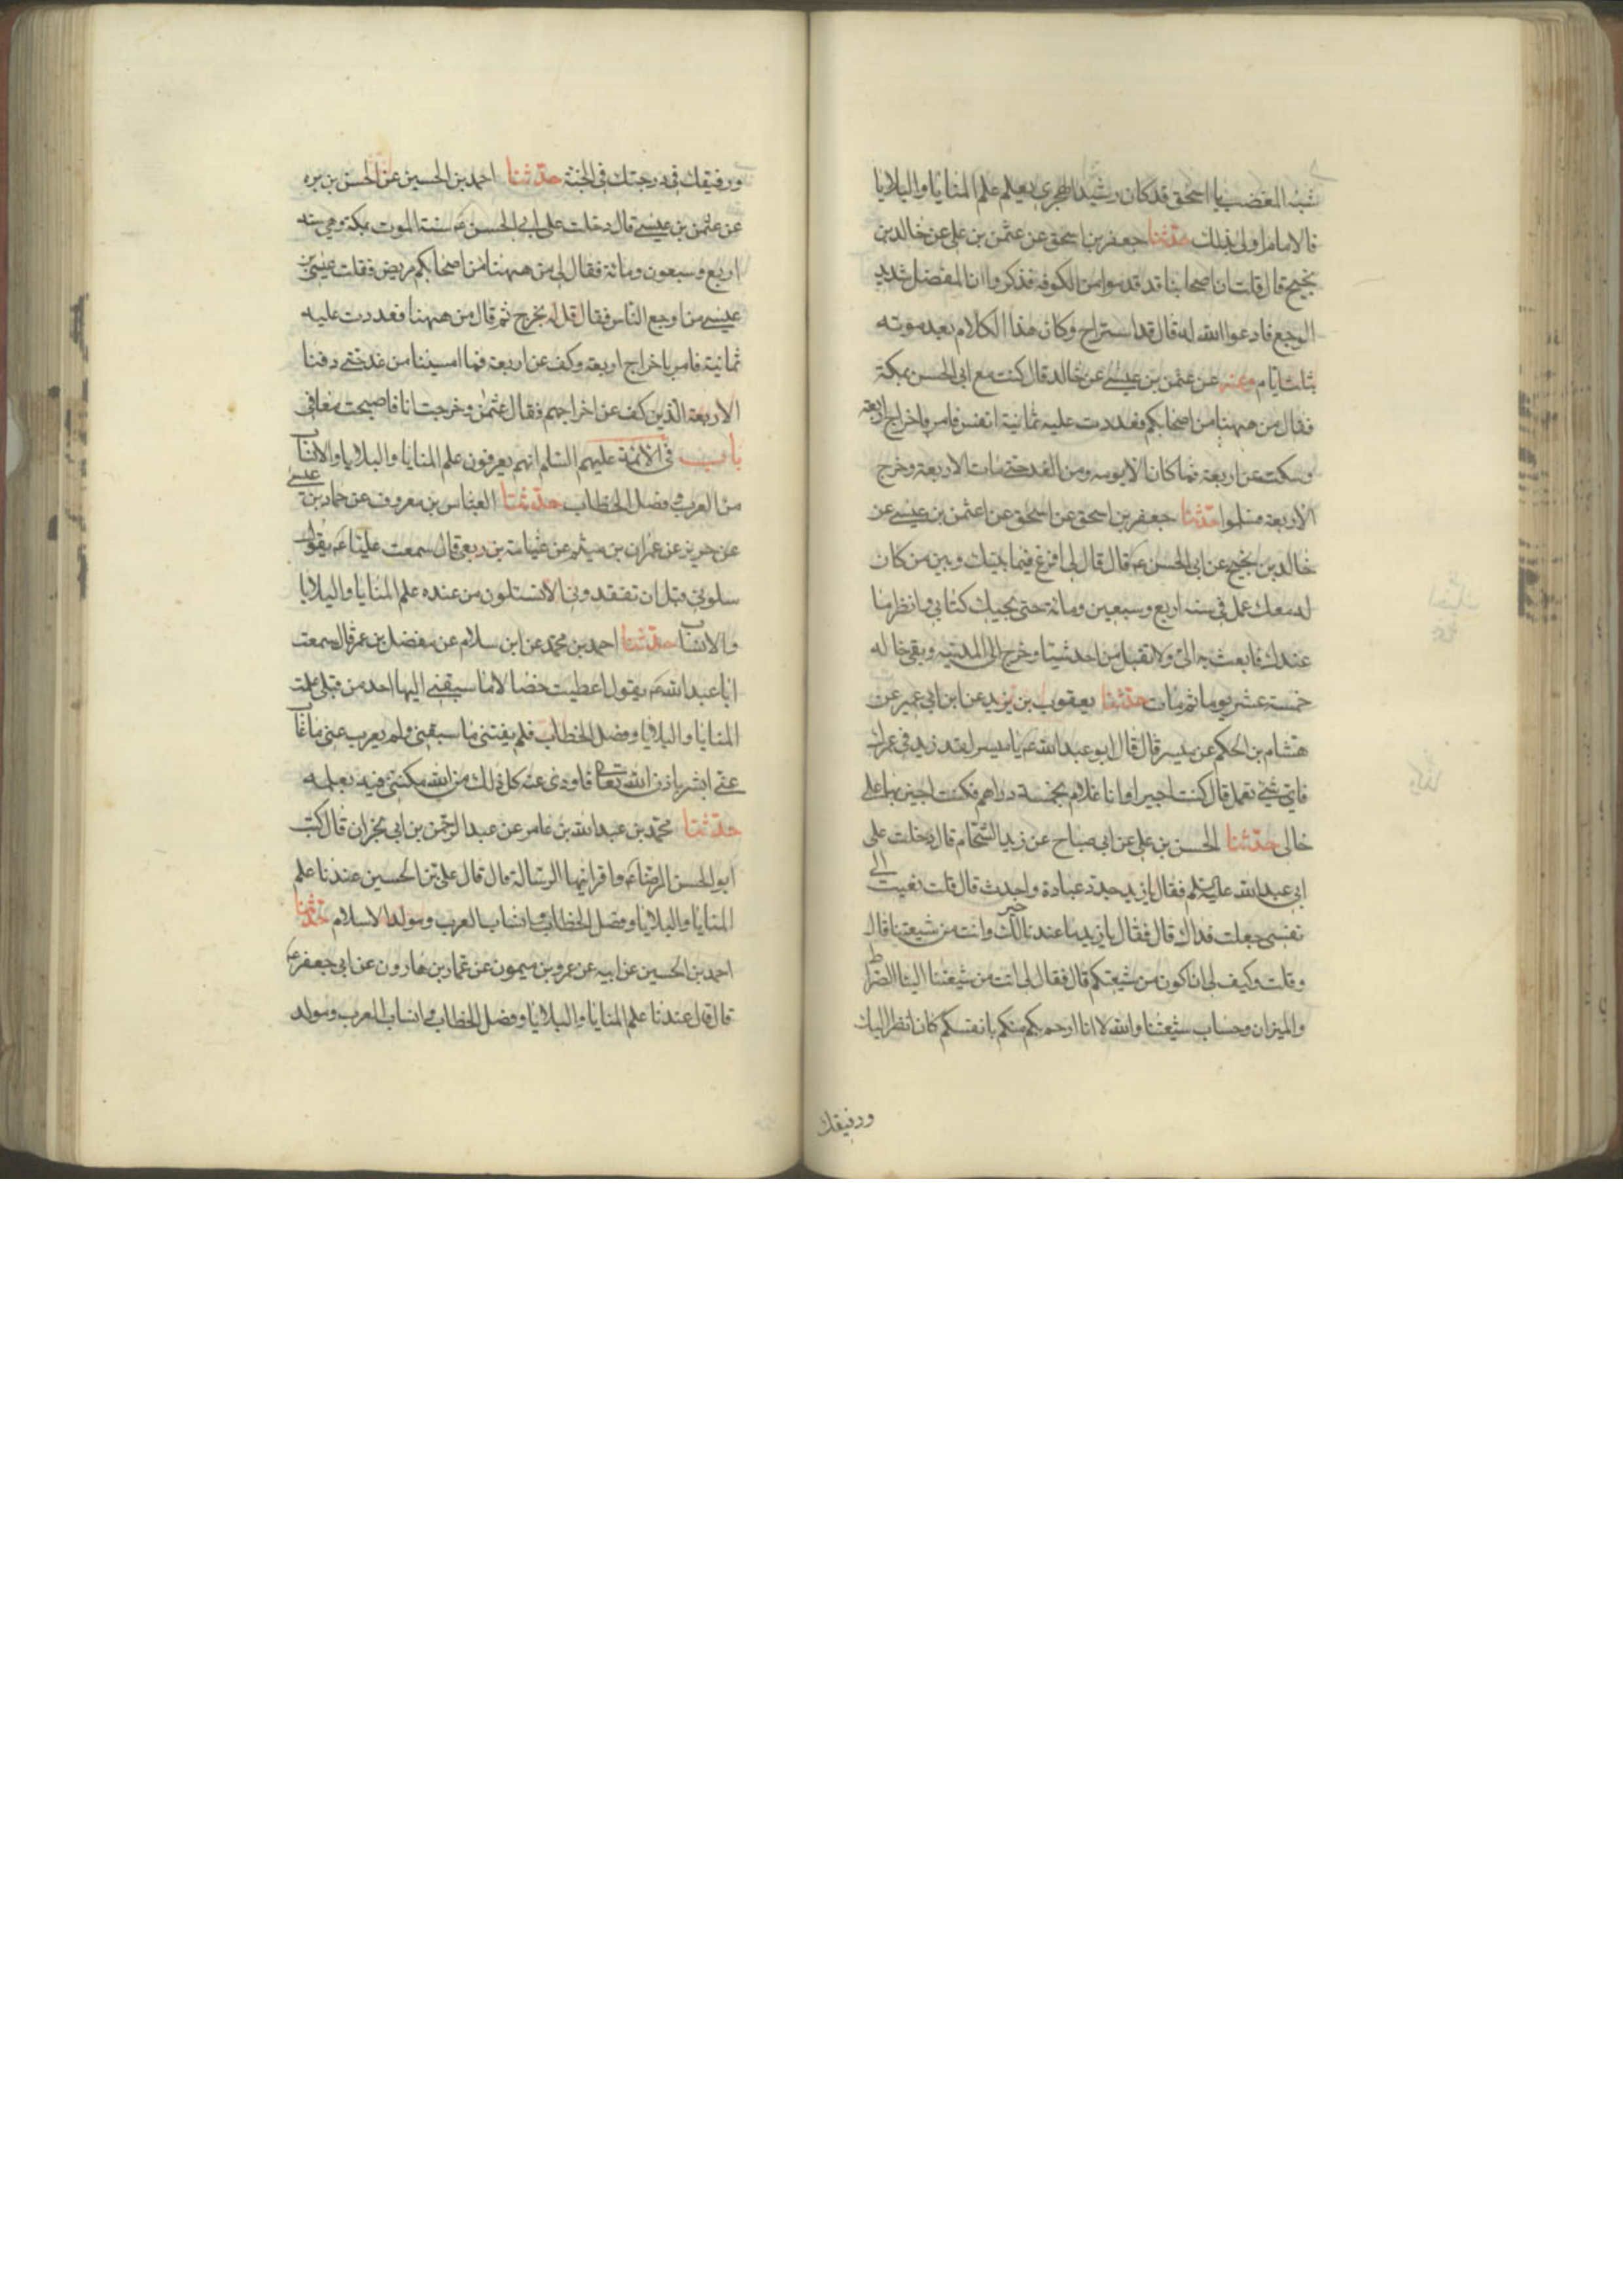 شبه المغضب يا اسحق قد كان رشيد الهجرى يعلم علم المنايا والبلايا
فالامام اولى بذلك حدثنا جعفر بن اسحق عن عثمن بن على عن خالد بن
نجيح قال قلت ان اصحابنا قد قدموا من الكوفه فذكروا ان المفضل شديد
الوجع فادعوا الله له قال قد استراح وكان هذا الكلام بعد موته
بثلث ايام وعنه عن عثمن بن عيسى عن خالد قال كنت مع ابى الحسن بمكة
فقال من ههنا من اصحابكم فعددت عليه ثمانية انفس فامر باخراج اربعة
وسكت عن اربعة فما كان الا يومه ومن الغد حتى مات الاربعة وخرج
الاربعة فسلموا حدثنا جعفر بن اسحق عن اسحق عن عثمن بن عيسى عن
خالد بن نجيح عن ابى الحسن ع قال قال لى افرغ فيما بينك وبين من كان
له معك عمل فى سنه اربع وسبعين ومائة حتى يجيك كتابى وانظر ما
عندك فابعث به الىّ ولا تقبل من احد شيئا وخرج الى المدينه وبقى خاله
خمسة عشر يوما ثم مات حدثنا يعقوب بن يزيد عن ابن ابى عمير عن
هشام بن الحكم عن ميسر قال قال ابو عبد الله ع يا ميسر لقد زيد فى عمرك
فاى شئ تعمل قال كنت اجيرا وانا غلام بخمسة دراهم فكنت اجيز بها على
خالى حدثنا الحسن بن على عن ابى صباح عن زيد الشحام قال دخلت على
ابى عبد الله عليه السلم فقال يا زيد جدد عبادة واحدث قال قلت نعيت الى
نفسى جعلت فداك قال فقال يا زيد ما عندنا لك خير وانت من شيعتنا قال
وقلت وكيف لى ان اكون من شيعتكم قال فقال لى انت من شيعتنا الينا الصراط
والميزان وحساب شيعتنا والله لانا ارحم بكم منكم بانفسكم كان انظر اليك
ورفيقك
ورفيقك فى درجتك فى الجنة حدثنا احمد بن الحسين عن الحسن بن بره
عن عثمن بن عيسى قال دخلت على ابى الحسن ع سنة الموت بمكة وهى سنه
اربع وسبعون ومائة فقال لى من ههنا من اصحابكم مريض فقلت عثمن بن
عيسى من اوجع الناس فقال قل له يخرج ثم قال من ههنا فعددت عليه
ثمانية فامر باخراج اربعة وكف عن اربعة فما امسينا من غد حتى دفنا
الاربعة الذين كف عن اخراجهم فقال عثمن وخرجت انا فاصبحت معافى
باب فى الائمة عليهم السلم انهم يعرفون علم المنايا والبلايا والانساب
من العرب وفصل الخطاب حدثنا العباس بن معروف عن حماد بن عيسى
عن حريز عن عمران بن ميثم عن عباية بن ربعى قال سمعت عليا ع يقول
سلونى قبل ان تفقدونى الا تسئلون من عنده علم المنايا والبلايا
والانساب حدثنا احمد بن محمد عن ابن سلام عن مفضل بن عمر قال سمعت
ابا عبد الله ع يقول اعطيت خصالا ما سبقنى اليها احد من قبلى علمت
المنايا والبلايا وفصل الخطاب فلم يفتنى ما سبقنى ولم يعزب عنى ما غاب
عنى ابشر باذن الله تعالى فاودى عنه كل ذلك من الله مكننى فيه بعلمه
حدثنا محمد بن عبد الله بن عامر عن عبد الرحمن بن ابى نجران قال كتب
ابو الحسن الرضا ع واقرانيها الرسالة قال قال على بن الحسين عندنا علم
المنايا والبلايا وفصل الخطاب وانساب العرب ومولد الاسلام حدثنا
احمد بن الحسين عن ابيه عن عمرو بن ميمون عن عمار بن هارون عن ابى جعفر ع
قال قال عندنا علم المنايا والبلايا وفصل الخطاب وانساب العرب ومولد